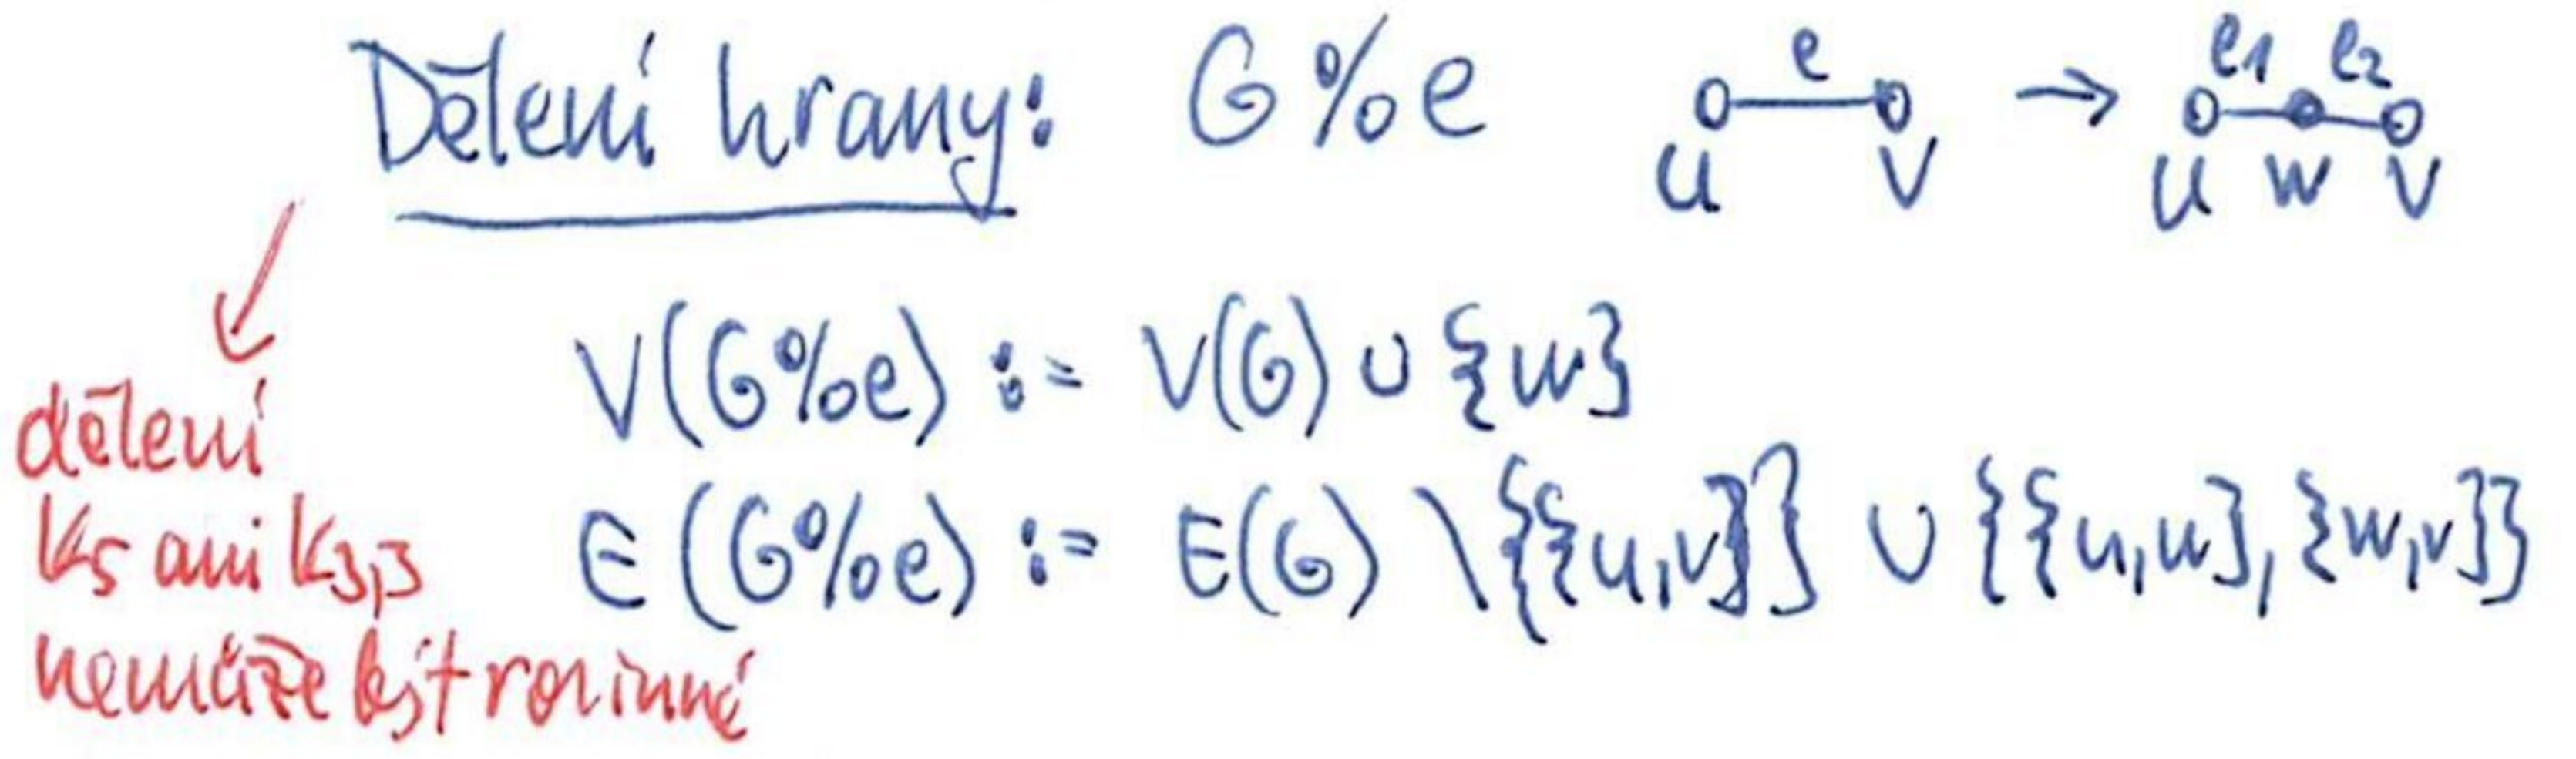 Dělení hrany: G%e e → e1 e2
u v u w v
V(G%e) := V(G) ∪ {w}
E(G%e) := E(G) \ {{u,v}} ∪ {{u,w}, {w,v}}
dělení
K5 ani K3,3
nemůže být rovinné